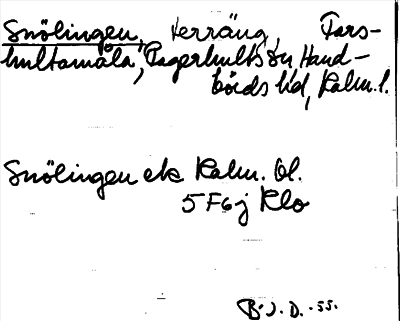 Snölingen, terräng, Fars-
hultamåla, Fagerhults sn Hand-
börds hd, Kalm. l.
Snölingen ek Kalm. bl.
5 F6j Klo
B.J.D. -55.